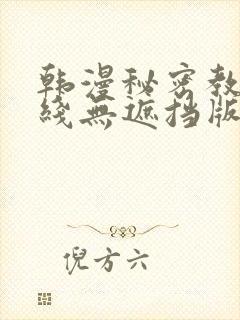 韩漫秘密教
线無遮挡版
倪方六